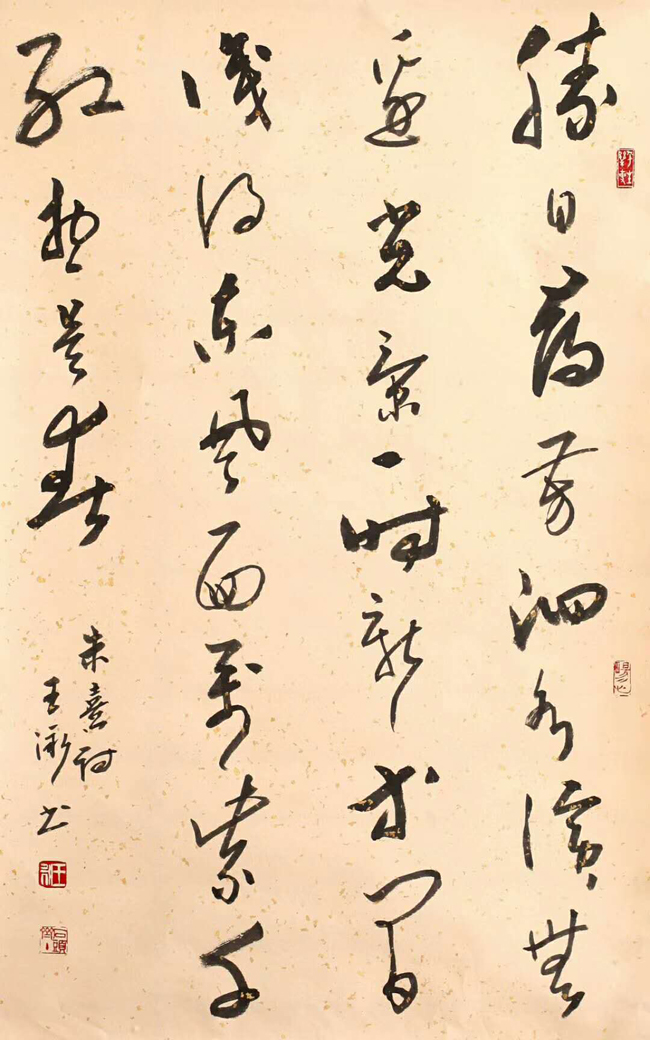 勝日尋芳泗水濱無
邊光景一時新等閒
識得東風面萬紫千
紅總是春
朱熹詩
王 书